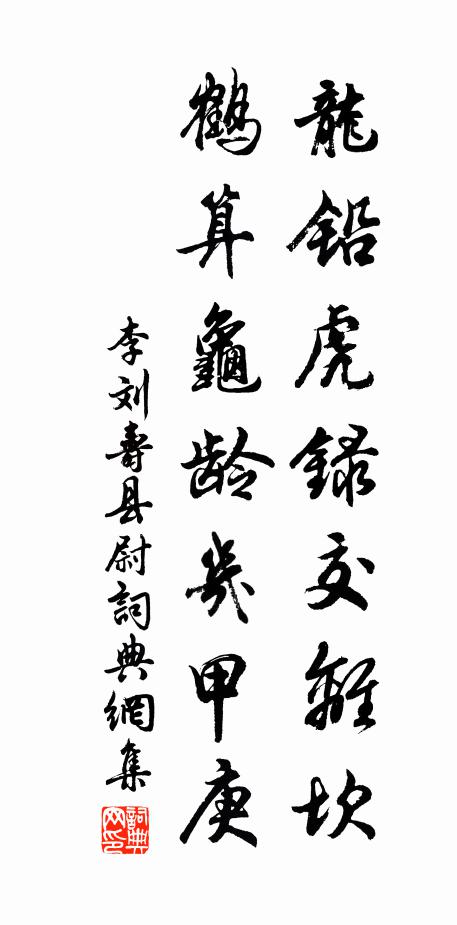 龍鉛虎録交離坎
鶴算龜齡幾甲庚
李刘壽县尉詞典網集
詞典网印